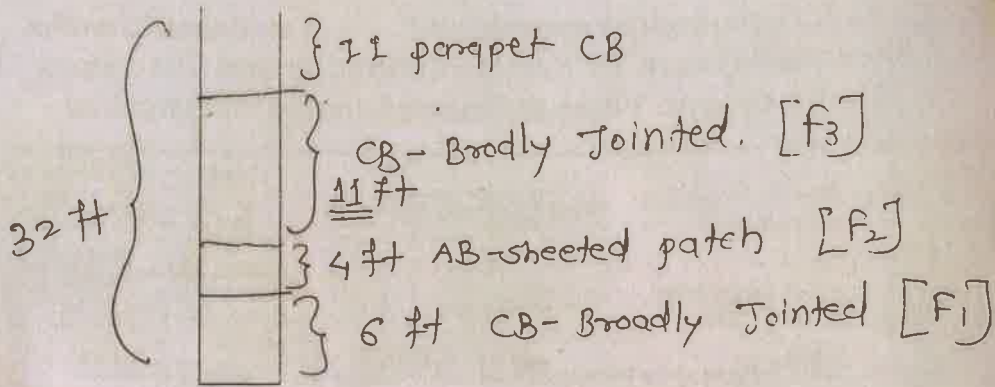 11 parapet CB
CB- Brodly Jointed. [f3]
11 ft
32 ft
4 ft AB-sheeted patch [F2]
6 ft CB- Broadly Jointed [F1]